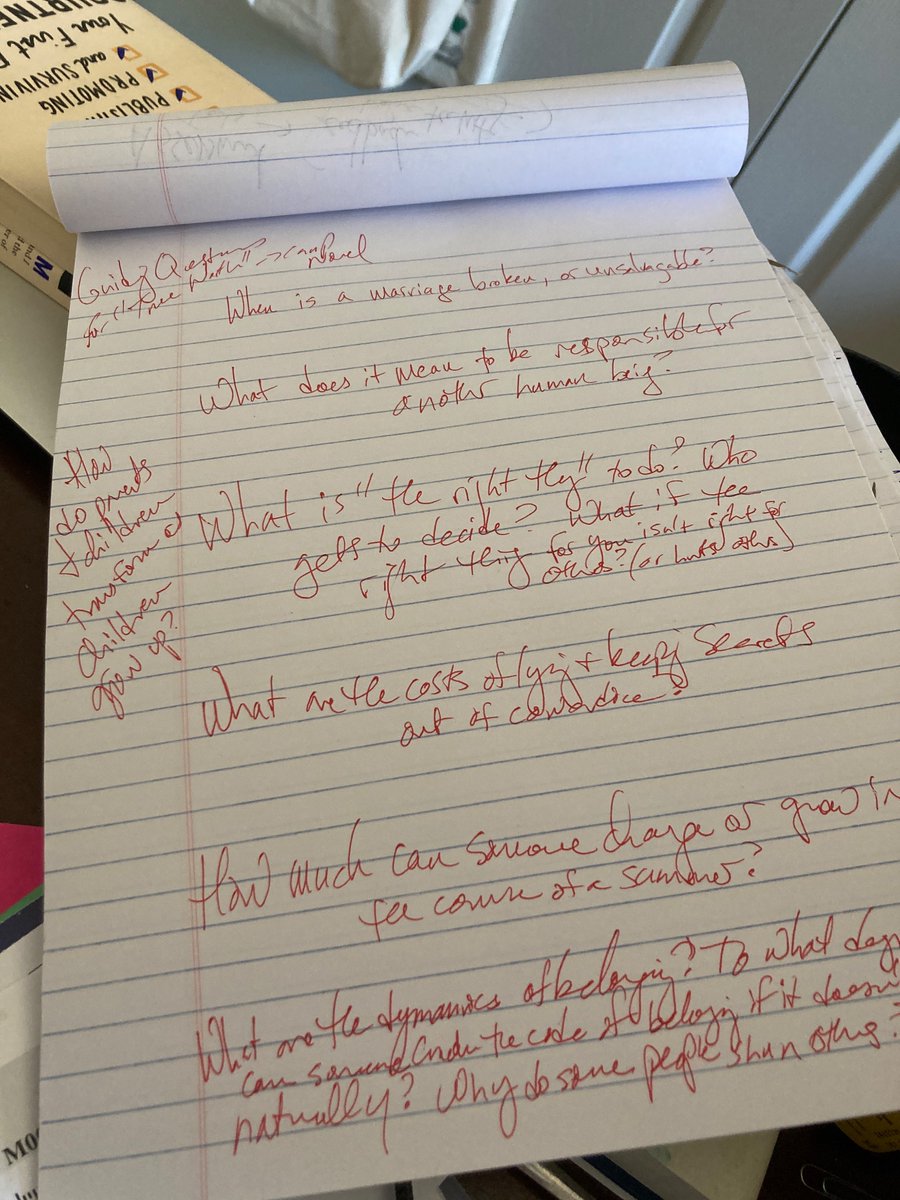 COURTNE
Your First B
and SURVIVIN
PROMOTING
PUBLISHI
M
Guiding Questions
for "Free Week" -> camp novel
When is a marriage broken, or unsalvagable?
What does it mean to be responsible for
another human being?
How
do parents
+ children
transform as
children
grow up?
What is "the right thing" to do? Who
gets to decide? What if the
right thing for you isn't right for
others? (or hurts others)
What are the costs of lying + keeping secrets
out of cowardice?
How much can someone change or grow in
the course of a summer?
What are the dynamics of belonging? To what deg
can someone the code of belonging if it doesn't
naturally? Why do some people shun others?
MO